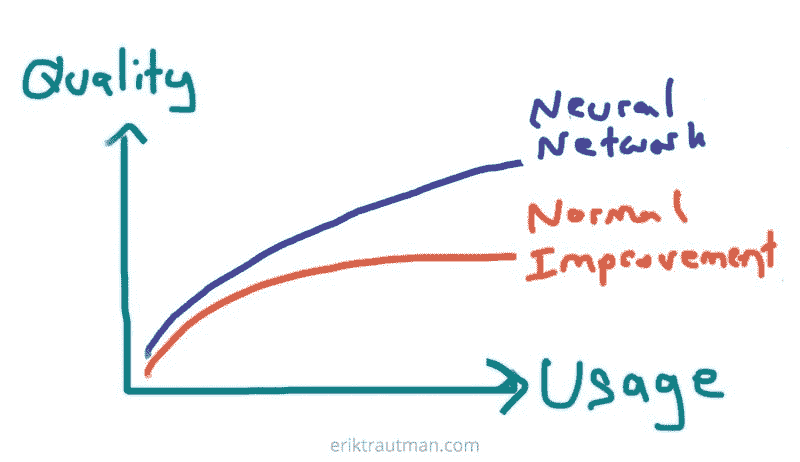 Quality
Neural
Network
Normal
Improvement
Usage
eriktrautman.com